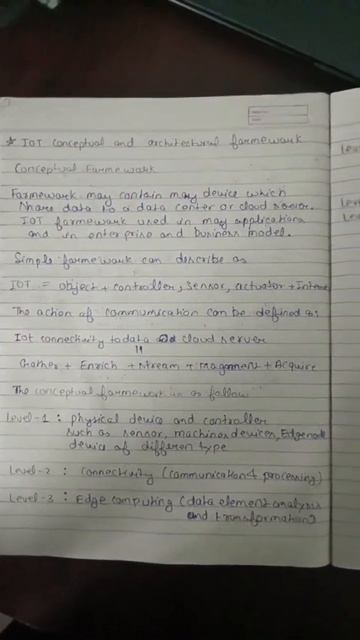 * IOT conceptual and architectural farmework
Conceptual Farmework
Farmework may contain may device which
share data to a data center or cloud server.
IOT farmework used in may applications
and in enterprise and business model.
Simple farmework can describe as
IOT = object + controller, sensor, actuator + Interne
The action of communication can be defined as
Iot connectivity to data cloud server
Gather + Enrich + stream + managment + Acquire
The conceptual farmework is as follow
Level-1 : physical device and controller
such as sensor, machines devices, Edgenode
device of different type
Level-2 : connectivity (communication & processing)
Level-3 : Edge computing (data element analysis
and transformation)